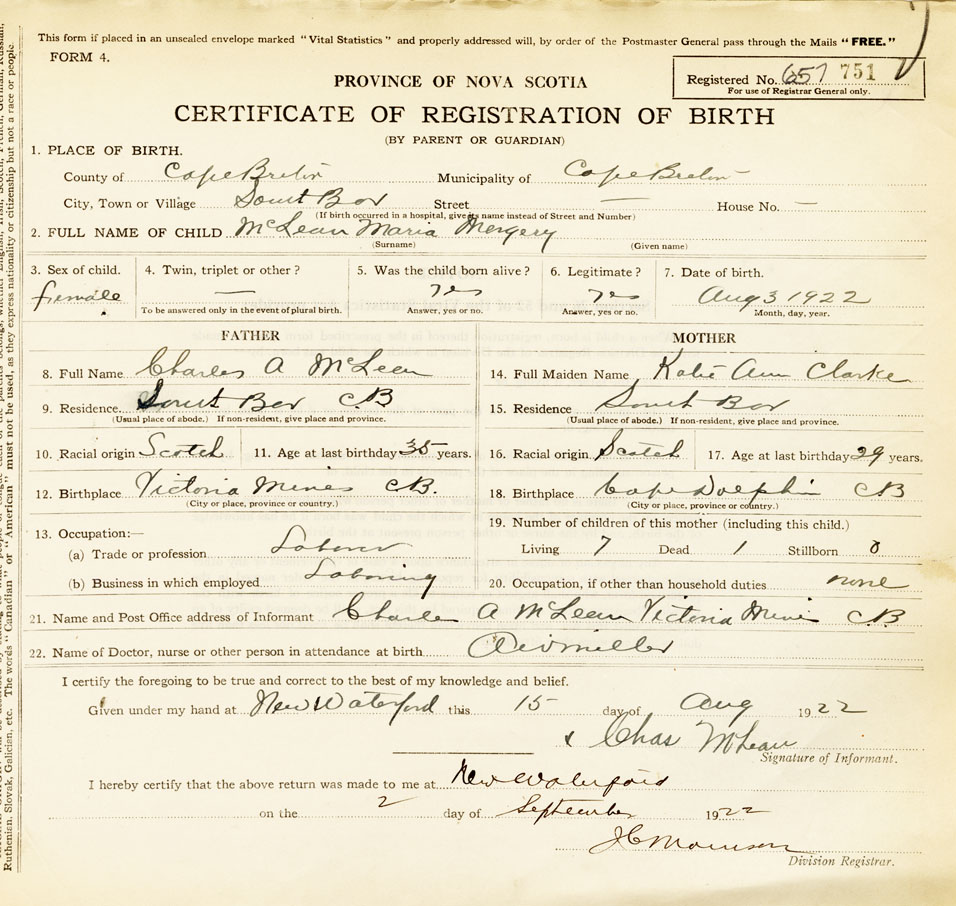 This form if placed in an unsealed envelope marked "Vital Statistics" and properly addressed will, by order of the Postmaster General pass through the Mails "FREE."
FORM 4.
PROVINCE OF NOVA SCOTIA
Registered No. 657 751
For use of Registrar General only.
CERTIFICATE OF REGISTRATION OF BIRTH
(BY PARENT OR GUARDIAN)
1. PLACE OF BIRTH.
County of Cape Breton Municipality of Cape Breton
City, Town or Village Sout Bar Street — House No. —
(If birth occurred in a hospital, give its name instead of Street and Number)
2. FULL NAME OF CHILD McLean Maria Mergery
(Surname) (Given name)
3. Sex of child. 4. Twin, triplet or other? 5. Was the child born alive? 6. Legitimate? 7. Date of birth.
female — yes yes Aug 3 1922
To be answered only in the event of plural birth. Answer, yes or no. Answer, yes or no. Month, day, year.
FATHER MOTHER
8. Full Name Charles A McLean 14. Full Maiden Name Katie Ann Clarke
9. Residence Sout Bar C.B 15. Residence Sout Bar
(Usual place of abode.) If non-resident, give place and province. (Usual place of abode.) If non-resident, give place and province.
10. Racial origin Scotch 11. Age at last birthday 35 years. 16. Racial origin Scotch 17. Age at last birthday 29 years.
12. Birthplace Victoria Mines C.B. 18. Birthplace Cape Dolphin CB
(City or place, province or country.) (City or place, province or country.)
13. Occupation:— 19. Number of children of this mother (including this child.)
(a) Trade or profession Laborer Living 7 Dead 1 Stillborn 0
(b) Business in which employed Laboring 20. Occupation, if other than household duties none
21. Name and Post Office address of Informant Charles A McLean Victoria Mines CB
22. Name of Doctor, nurse or other person in attendance at birth
I certify the foregoing to be true and correct to the best of my knowledge and belief.
Given under my hand at New Waterford this 15 day of Aug 1922
x Chas McLean
Signature of Informant.
I hereby certify that the above return was made to me at New Waterford
on the 2 day of September 1922
Division Registrar.
Ruthenian, Slovak, Galician, etc. The words "Canadian" or "American" must not be used, as they express nationality or citizenship but not a race or people.